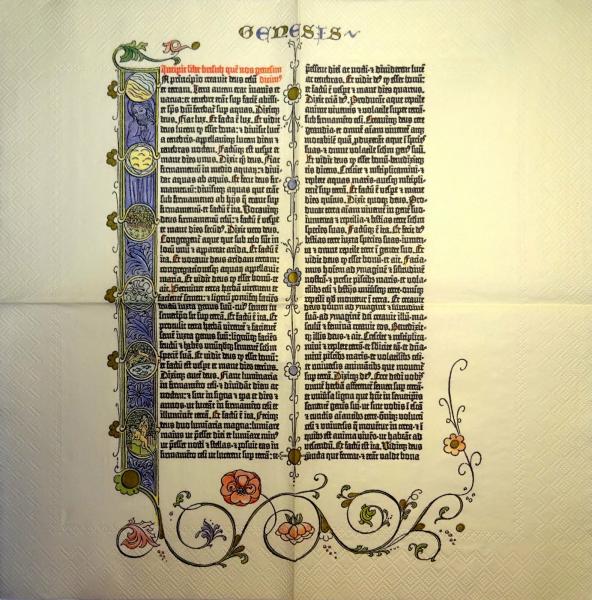 GENESIS
Incipit liber bresith quē nos genesim
A principio creavit deus celū dicimꝰ
et terram. Terra autem erat inanis et
vacua: et tenebre erāt sup faciē abissi:
et sp̄s dn̄i ferebat᷑ sup aquas. Dixitq̄
deus. Fiat lux. Et facta ē lux. Et vidit
deus lucem ꝙ esset bona: et divisit lucē
a tenebris·appellavitq̄ lucem diem et
tenebras noctem. Factūq̄ est vespe et
mane dies unus. Dixit q̄ deus. Fiat
firmamentū in medio aquaꝝ: et divi-
dat aquas ab aquis. Et fecit deus fir-
mamentū: divisitq̄ aquas que erāt
sub firmamento ab hijs q̄ erant sup
firmamentū: et factū ē ita. Vocavitq̄
deus firmamentū celū: et factū ē vespe
et mane dies secūdꝰ. Dixit vero deus.
Congregent᷑ aque que sub celo sūt in
locū unū et appareat arida. Et factū ē
ita. Et vocavit deus aridam terram:
congregacionesq̄ aquaꝝ appellavit
maria. Et vidit deus ꝙ esset bonū·et
ait. Germinet terra herbā virentem et
facientē semen: et lignū pomiferū faciēs
fructū iuxta genus suū·
semetipō sit sup terrā. Et factū ē ita. Et
protulit terra herbā virentē et facientē
semē iuxta genus suū: lignūq̄ faciēs
fructū et habēs unūqdq̄ sementē scdm
speciē suā. Et vidit deus ꝙ esset bonū:
et factū est vespe et mane dies tercius.
Dixitq̄ autē deus. Fiant luminaria
in firmamēto celi·et dividāt diem ac
noctem: et sint in signa et tpa et dies et
annos·ut luceāt in firmamēto celi et
illuminēt terrā. Et factū ē ita. Fecitq̄
deus duo luminaria magna: luminare
maius ut p̄esset diei et luminare minꝰ
ut p̄esset nocti: et stellas·et posuit eas in
firmamēto celi ut lucerent sup terrā: et
p̄essent diei ac nocti: et dividerent lucē
ac tenebras. Et vidit deꝰ ꝙ esset bonū:
et factū ē vespe et mane dies quartus.
Dixit eciā deꝰ. Producāt aque reptile
anime viventis et volatile super terrā
sub firmamēto celi. Creavitq̄ deus cete
grandia·et omnē aīam viventē atq̄
motabilē quā pduxerāt aque ī species
suas·et omne volatile scdm genꝰ suū.
Et vidit deus ꝙ esset bonū: benedixitq̄
eis dicens. Crescite et multiplicamini·et
replete aquas maris·avesq̄ mltiplicent᷑
sup terrā. Et factū ē vespe et mane
dies quintus. Dixit quoq̄ deus. Pro-
ducat terra aīam viventē in gene suo·
iumenta et reptilia·et bestias terre scdm
species suas. Factūq̄ ē ita. Et fecit deꝰ
bestias terre iuxta species suas·iumen-
ta et omne reptile terre ī genere suo. Et
vidit deus ꝙ esset bonū·et ait. Facia-
mus hoīem ad ymaginē et silitudinē
nostrā·et p̄sit piscibꝫ maris·et vola-
tilibꝫ celi et bestijs universeq̄ terre·omniq̄
reptili qd movet᷑ ī terra. Et creavit
deus hoīem ad ymaginē et silitudinē
suā·ad ymaginē dei creavit illū·ma-
sculū et feminā creavit eos. Benedixit-
q̄ illis deus·et ait. Crescite et mltiplica-
mini et replete terrā·et subicite eā·et dn̄a-
mini piscibꝫ maris·et volatilibꝫ celi·
et universis animātibꝫ que moventur
sup terrā. Dixitq̄ deꝰ. Ecce dedi vobis
omnē herbā afferentē semen sup terrā·
et universa ligna que hn̄t in semetipsis
sementē genis sui·ut sint vobis ī escā
et cūctis aīantibꝫ terre·omniq̄ volucri
celi et universis q̄ moventur in terra·et ī
quibꝫ est anima vivēs·ut habeāt ad
vescendū. Et factū est ita. Viditq̄ deus
cuncta que fecerat·et erāt valde bona